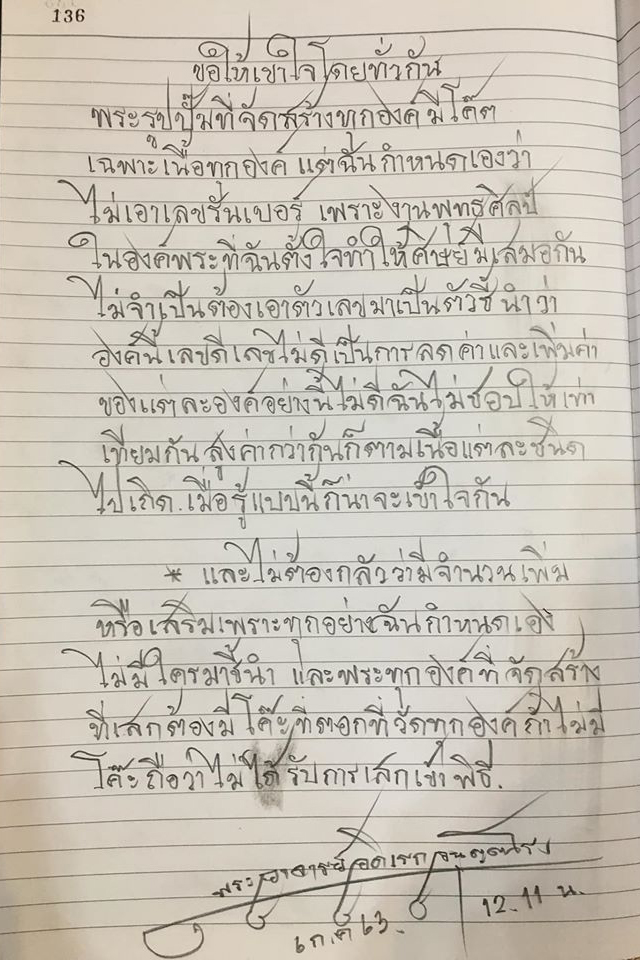 136
ขอให้เข้าใจโดยทั่วกัน
พระรูปปั๊มที่จัดสร้างทุกองค์มีโค๊ต
เฉพาะเนื้อทุกองค์ แต่ฉันกำหนดเองว่า
ไม่เอาเลขรันเบอร์ เพราะงานพุทธศิลป์
ในองค์พระที่ฉันตั้งใจทำให้ศิษย์มีเสมอกัน
ไม่จำเป็นต้องเอาตัวเลขมาเป็นตัวชี้นำว่า
องค์นี้เลขดีเลขไม่ดีเป็นการลดค่าและเพิ่มค่า
ของแต่ละองค์อย่างนี้ไม่ดีฉันไม่ชอบให้เท่า
เทียมกัน สูงค่ากว่ากันก็ตามเนื้อแต่ละชนิด
ไปเถิด. เมื่อรู้แบบนี้ก็น่าจะเข้าใจกัน
* และไม่ต้องกลัวว่ามีจำนวนเพิ่ม
หรือเสริมเพราะทุกอย่างฉันกำหนดเอง
ไม่มีใครมาชี้นำ และพระทุกองค์ที่จัดสร้าง
ที่เสกต้องมีโค๊ะที่ตอกที่วัดทุกองค์ถ้าไม่มี
โค๊ะถือว่าไม่ได้รับการเสกเข้าพิธี.
พระอาจารย์
12.11 น.
ก.ค 63.